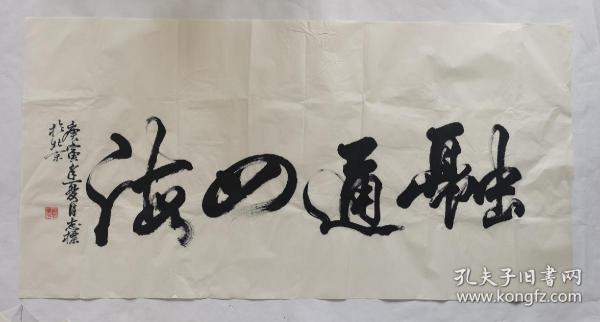 融通四海
庚寅年夏月志標
於北京
孔夫子旧书网
www.kongfz.com